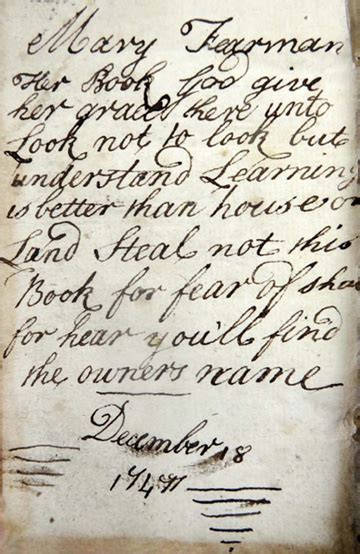 Mary Fearman
Her Book God give
her graces here unto
Look not to look but
understand Learning
is better than house or
Land Steal not this
Book for fear of sha
for hear you'll find
the owners name
December 18
1747